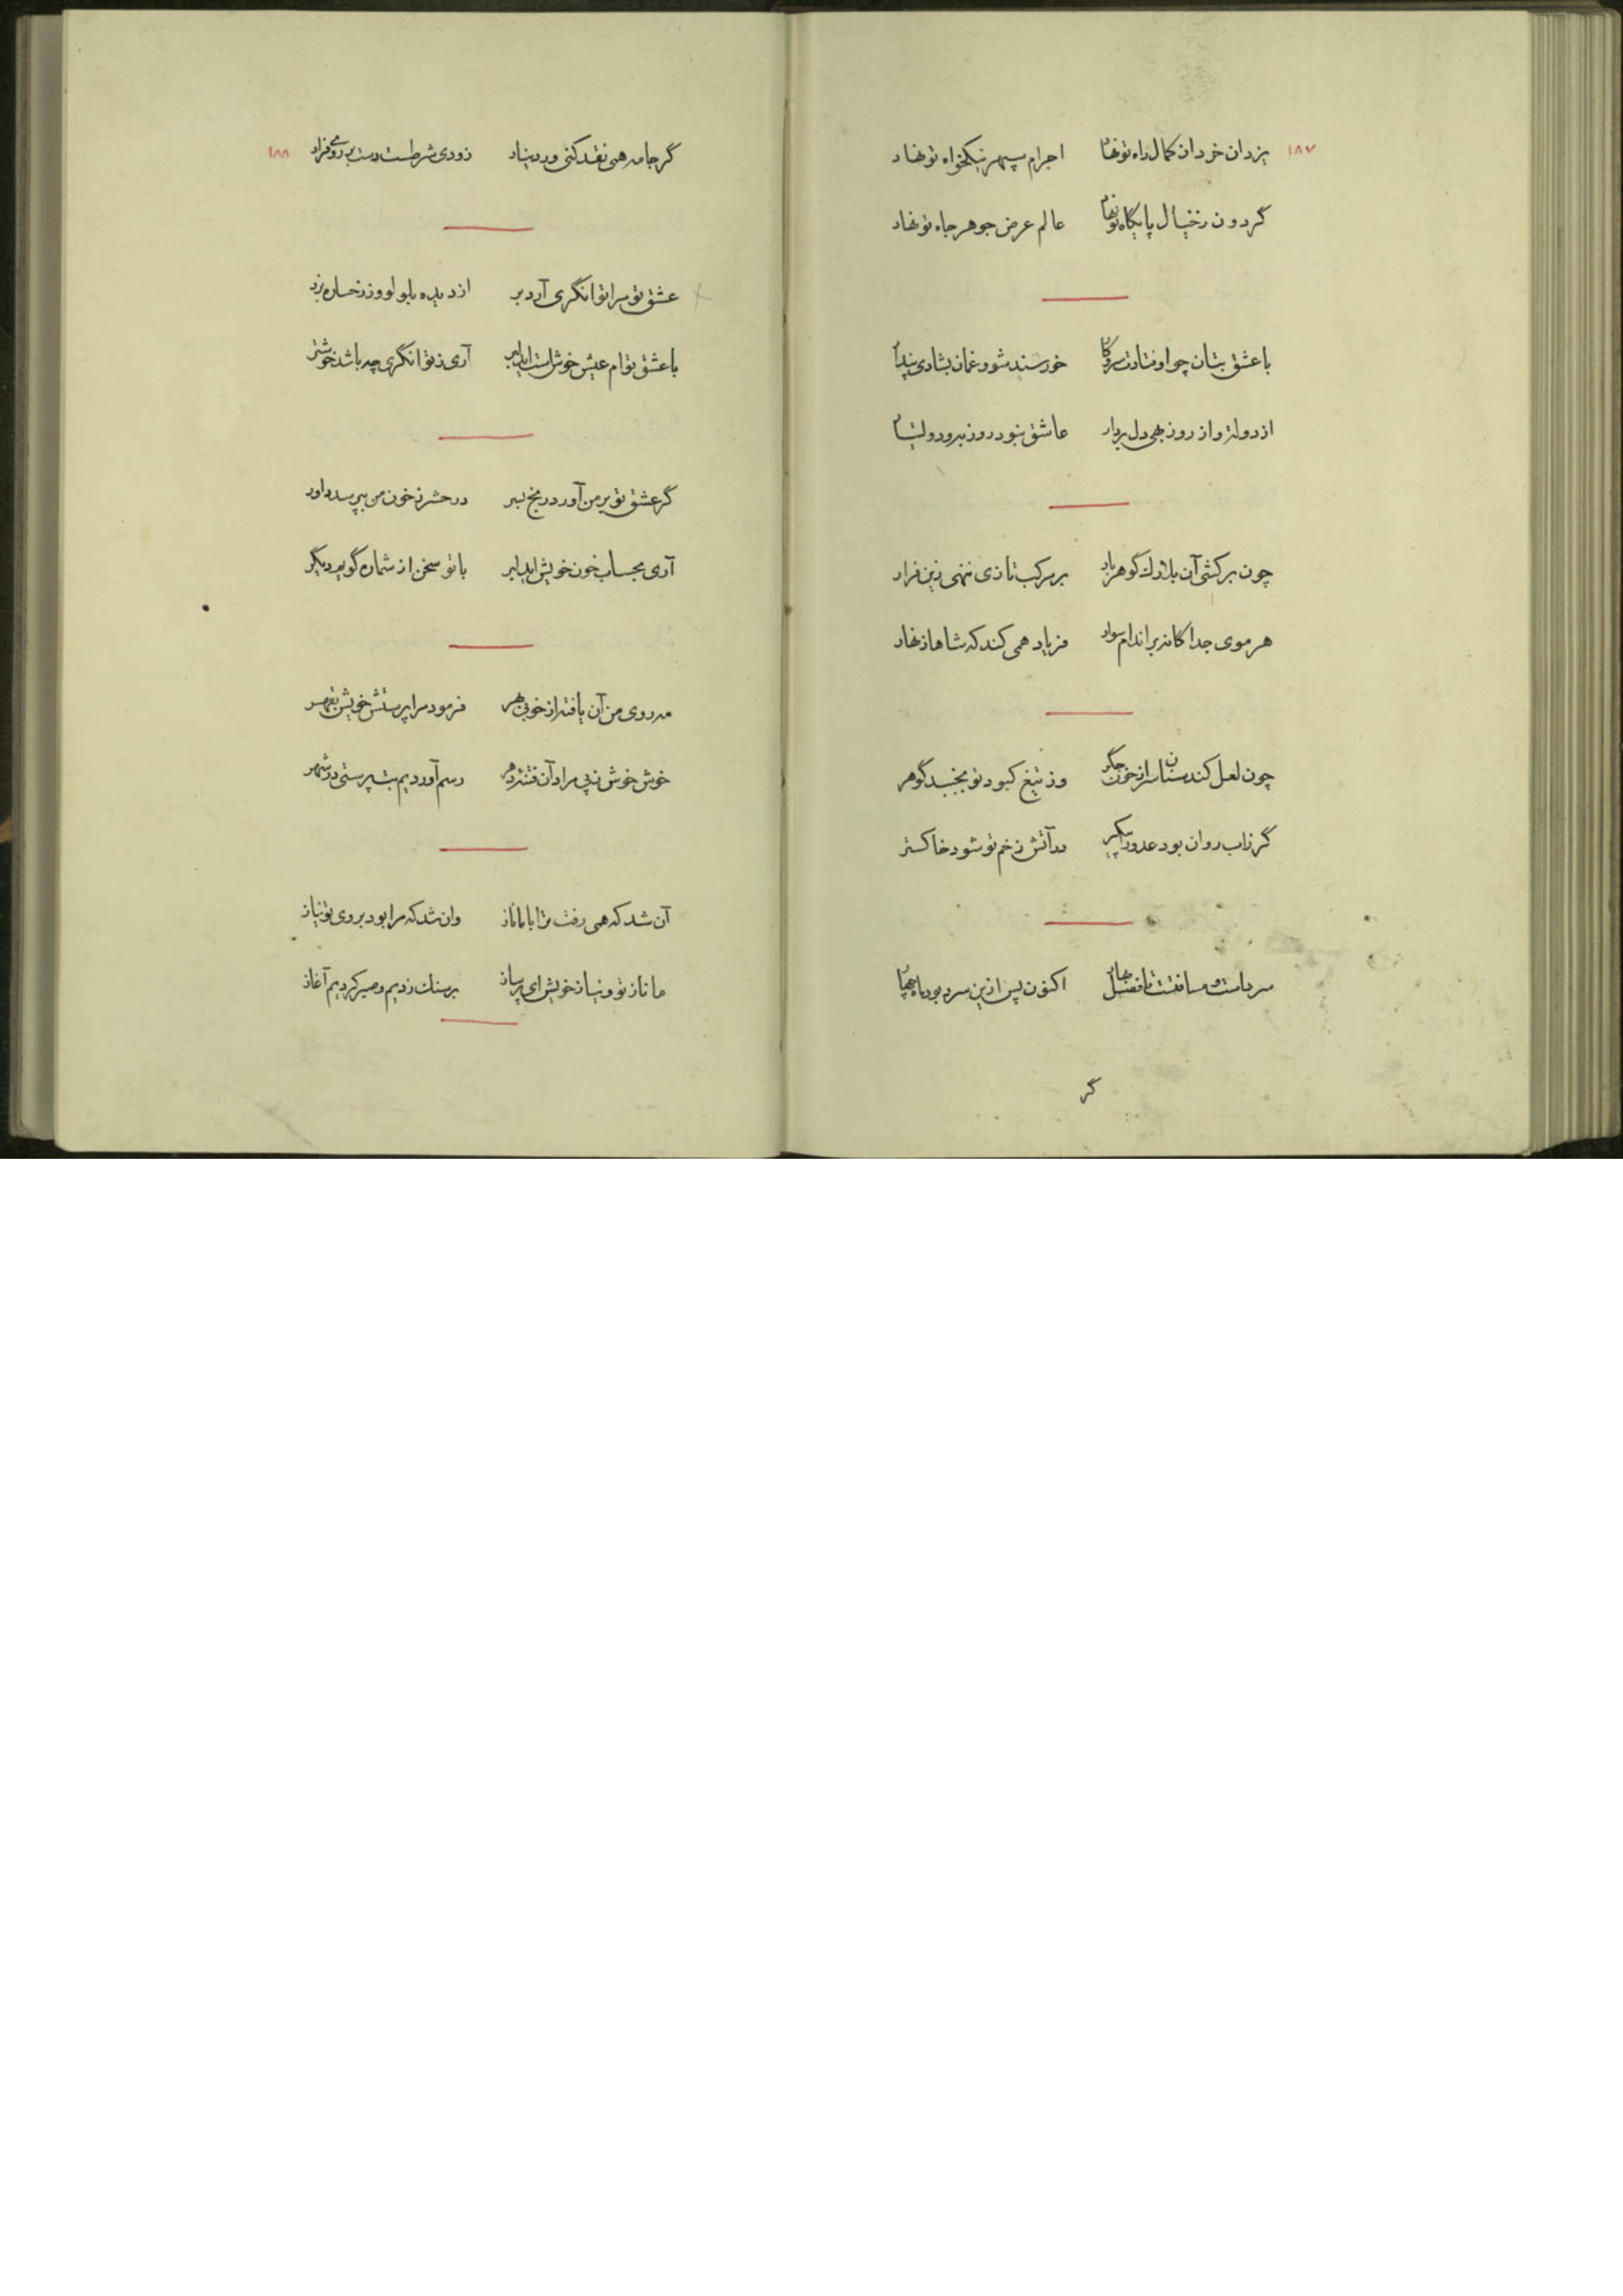 ۱۸۷
یزدان خرد از کمال راه تو نهاد اجرام سپهر نیکخواه تو نهاد
گردون زخیال پایگاه تو نهاد عالم عرض جوهر جاه تو نهاد
با عشق بتان چو اوفتادت سر و کار خورسند مشو و غمان بشادی
از دولت و از روز بهی دل بردار عاشق نبود روز به و دولتیار
چون برکشی آن بلارک گوهربار بر مرکب تازی نهی زین فرار
هر موی جداگانه بر اندام سوار فریاد همی کند که شاها زنهار
چون لعل کند سنان سر از خون جگر وز تیغ کبود تو بجنبد گوهر
گر زاب روان بود عدو را پیکر در آتش زخم تو شود خاکستر
سرد است و مسافتت تا فصل بهار اکنون پس ازین سرد بود باد
گر
۱۸۸
گر جامه همی نقد کنی ور دینار زودی شرطست دست بر
عشق تو مرا توانگری آرد بر از دیده بلولو و ز رخساره بزر
با عشق تو ام عیش خوش است ای دلبر آری ز توانگری چه باشد خوشتر
گر عشق تو بر من آورد رنج بسر در حشر ز خون من بپرسد داور
آری بحساب خون خویش ای دلبر با تو سخن از شماره گویم دیگر
مه روی من آن یافته از خوبی بهر فرمود مرا پرستش خویش بقهر
خوش خوش ز پی مراد آن فتنهٔ دهر رسم آوردیم بت پرستی در شهر
آن شد که همی رفت ترا با ما ناز وان شد که مرا بود بروی تو نیاز
ما ناز تو و نیاز خویش ای بر سنك زدیم و صبر کردیم آغاز